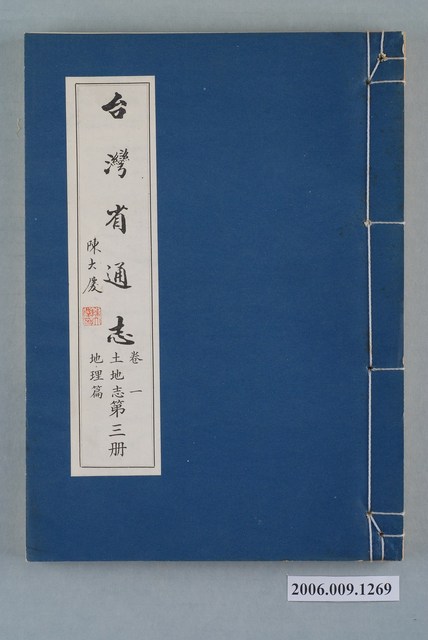 台灣省通志
陳大慶
卷一
土地志第三册
地理篇
2006.009.1269